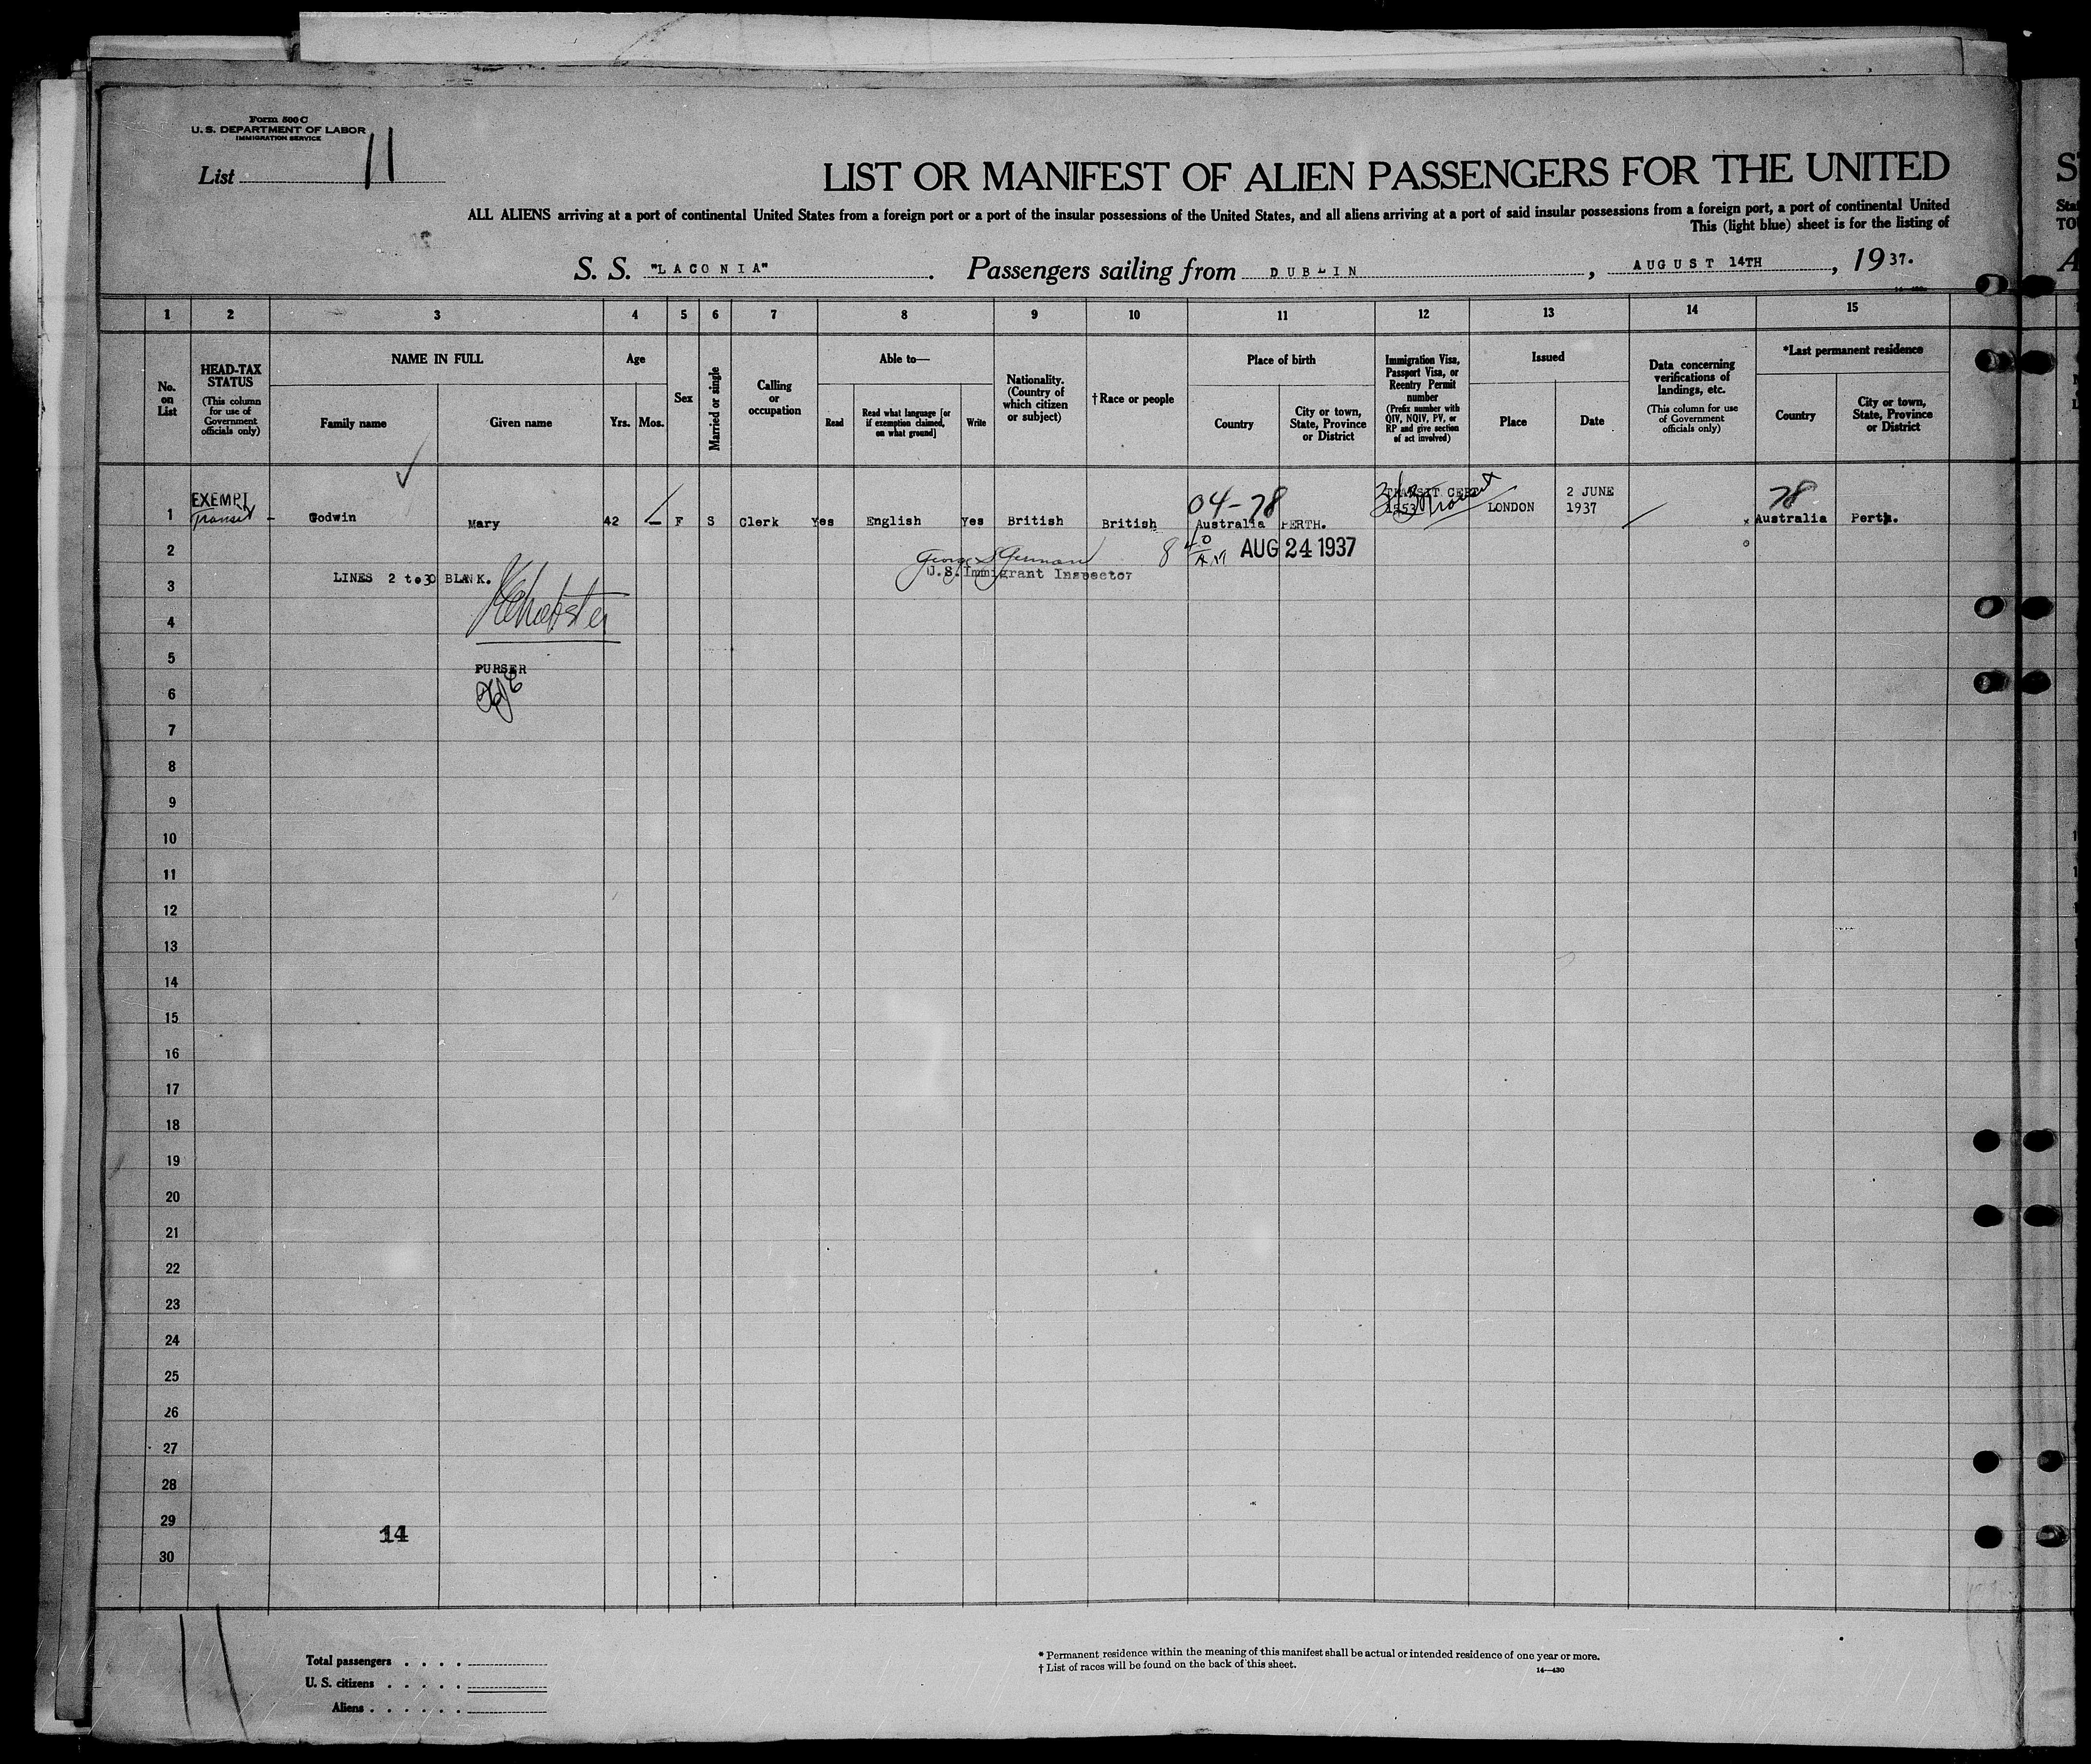 Form 500 C
U. S. DEPARTMENT OF LABOR
IMMIGRATION SERVICE
List 11
LIST OR MANIFEST OF ALIEN PASSENGERS FOR THE UNITED
ALL ALIENS arriving at a port of continental United States from a foreign port or a port of the insular possessions of the United States, and all aliens arriving at a port of said insular possessions from a foreign port, a port of continental United
This (light blue) sheet is for the listing of
S. S. "LACONIA". Passengers sailing from DUBLIN, AUGUST 14TH, 1937.
1 2 3 4 5 6 7 8 9 10 11 12 13 14 15
No. on List
HEAD-TAX STATUS
(This column for use of Government officials only)
NAME IN FULL
Family name
Given name
Age
Yrs.
Mos.
Sex
Married or single
Calling or occupation
Able to—
Read
Read what language [or if exemption claimed, on what ground]
Write
Nationality. (Country of which citizen or subject)
†Race or people
Place of birth
Country
City or town, State, Province or District
Immigration Visa, Passport Visa, or Reentry Permit number
(Prefix number with QIV, NQIV, PV, or RP and give section of act involved)
Issued
Place
Date
Data concerning verifications of landings, etc.
(This column for use of Government officials only)
*Last permanent residence
Country
City or town, State, Province or District
EXEMPT
Transit
04-78
TRANSIT CERT
2 JUNE
78
1 Godwin Mary 42 — F S Clerk Yes English Yes British British Australia PERTH. LONDON 1937 Australia Perth.
2 AUG 24 1937
U.S. Immigrant Inspector
3 LINES 2 to 30 BLANK.
4
5
PURSER
6
7
8
9
10
11
12
13
14
15
16
17
18
19
20
21
22
23
24
25
26
27
28
29
14
30
Total passengers . . . .
U. S. citizens . . . . .
Aliens . . . . . .
* Permanent residence within the meaning of this manifest shall be actual or intended residence of one year or more.
† List of races will be found on the back of this sheet.
14—430